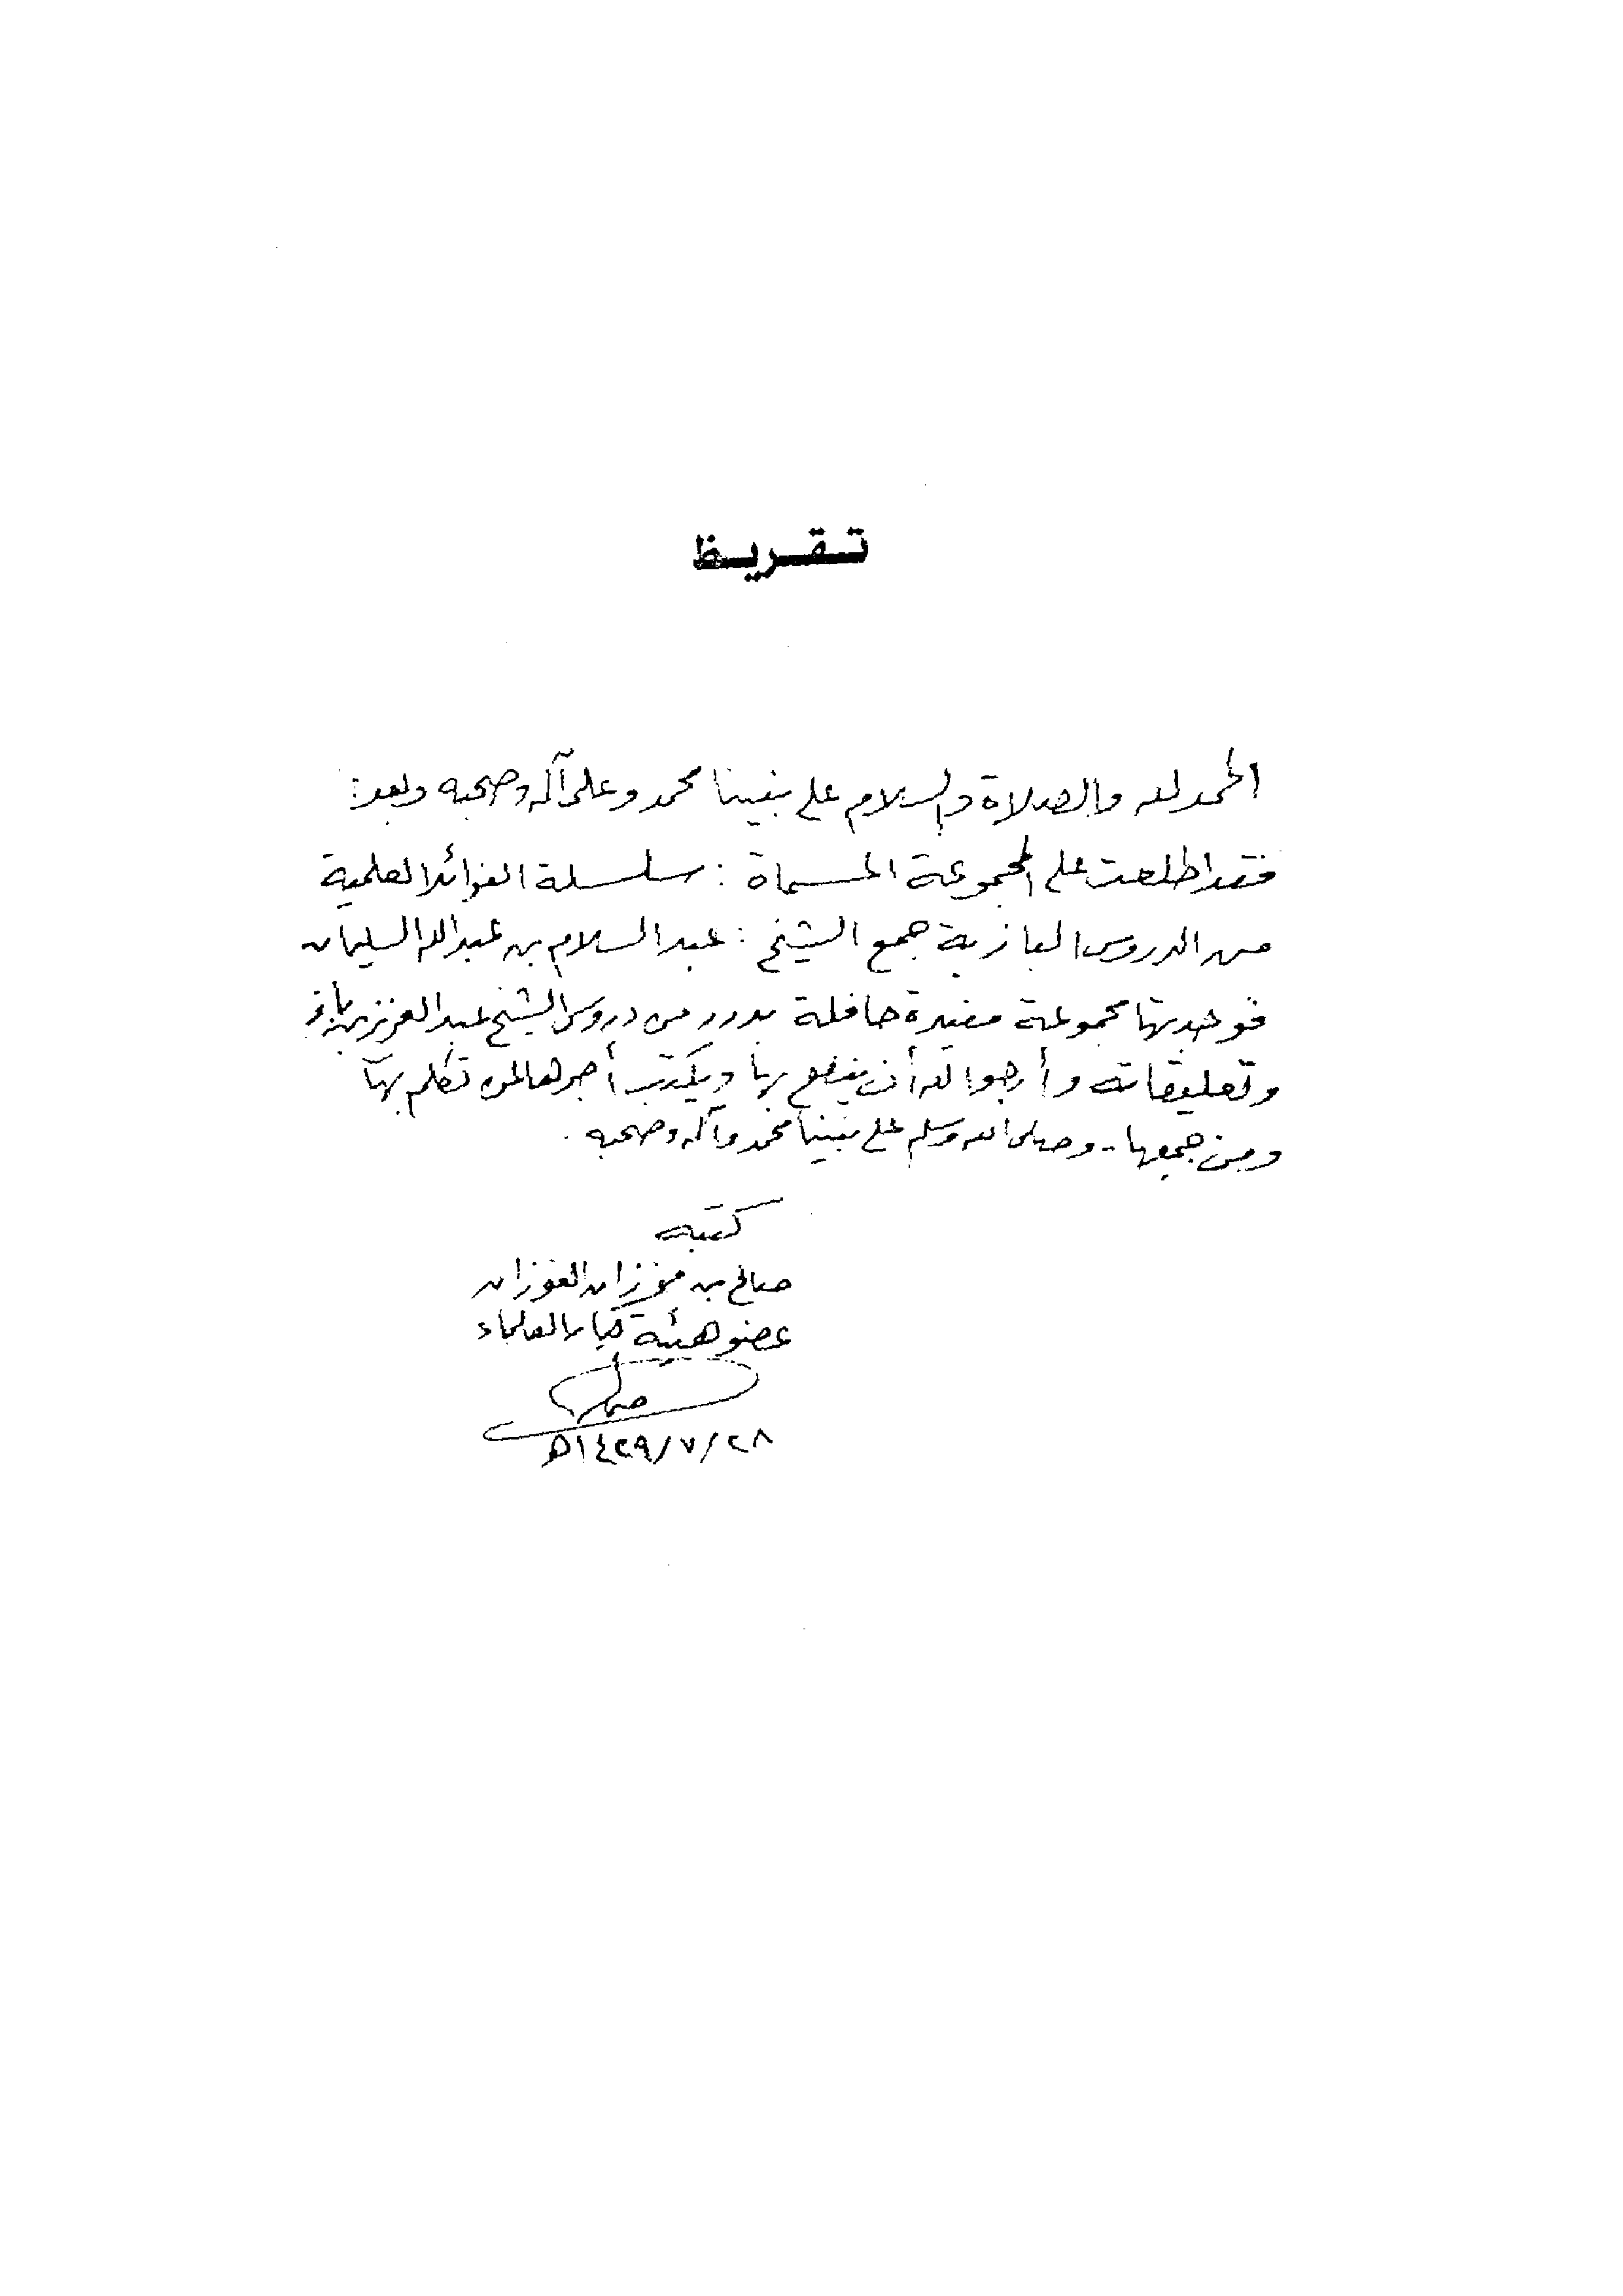 تقريظ
الحمد لله والصلاة والسلام على نبينا محمد وعلى آله وصحبه وبعد:
فقد اطلعت على المجموعة المسماة : سلسلة الفوائد العلمية
من الدروس البازية جمع الشيخ : عبد السلام بن عبد الله السليمان
فوجدتها مجموعة مفيدة حافلة بدرر من دروس الشيخ عبد العزيز بن باز
وتعليقاته وأرجو الله أن ينفع بها ويكتب أجرها لمن تكلم بها
ومن جمعها - وصلى الله وسلم على نبينا محمد وآله وصحبه .
كتبه
صالح بن فوزان الفوزان
عضو هيئة كبار العلماء
١٤٢٩/٧/٢٨هـ